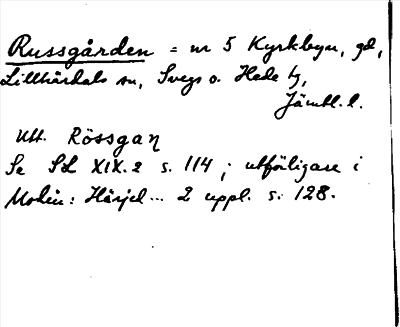 Russgården = nr 5 Kyrkbyn, gd,
Lillhärdals sn, Svegs o. Hede tg,
Jämtl. l.
Utt. Rössgaɳ
Se SOL XIX. 2 s. 114 ; utförligare i
Modin: Härjed... 2 uppl. s. 128.